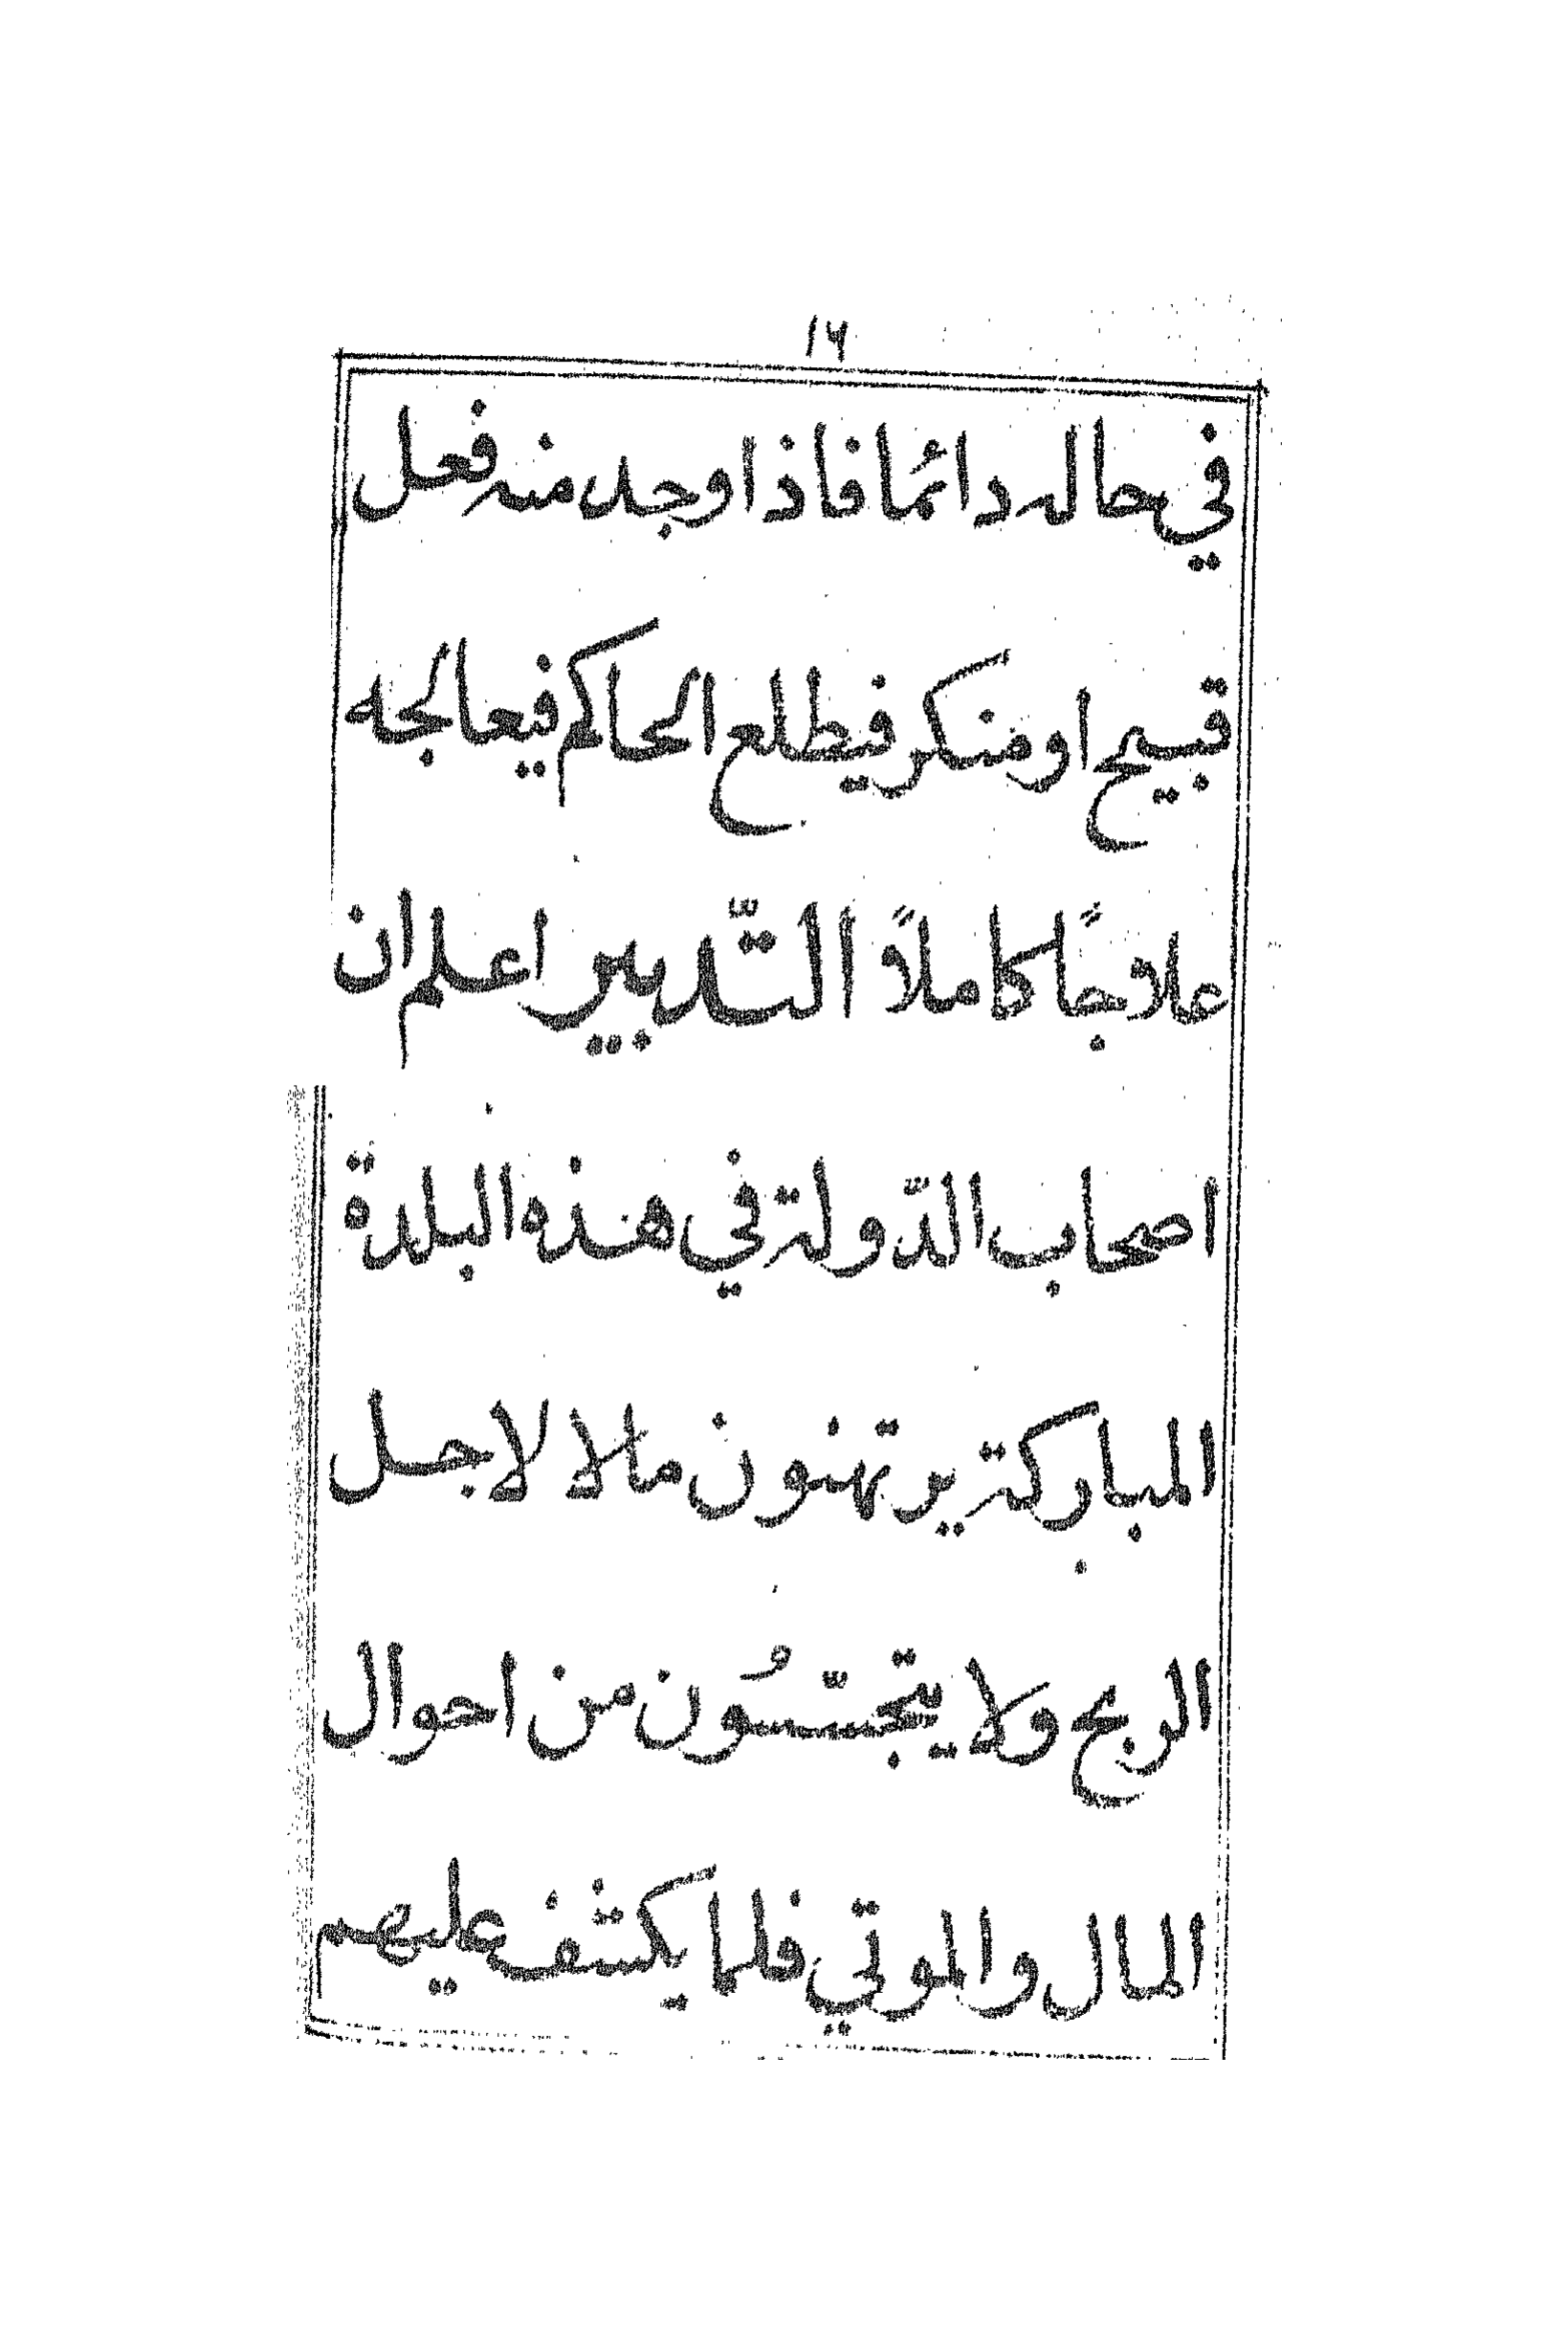 ۱۶
في حاله دائما فاذا وجد منه فعل
قبيح او منكر فيطلع الحاكم فيعالجه
علاجًا كاملًا التّدبير اعلم ان
اصحاب الدّولة في هذه البلدة
المباركة يرتهنون مالا لاجل
الربح ولا يتجسّسُون من احوال
المال والموتي فلما يكشف عليهم